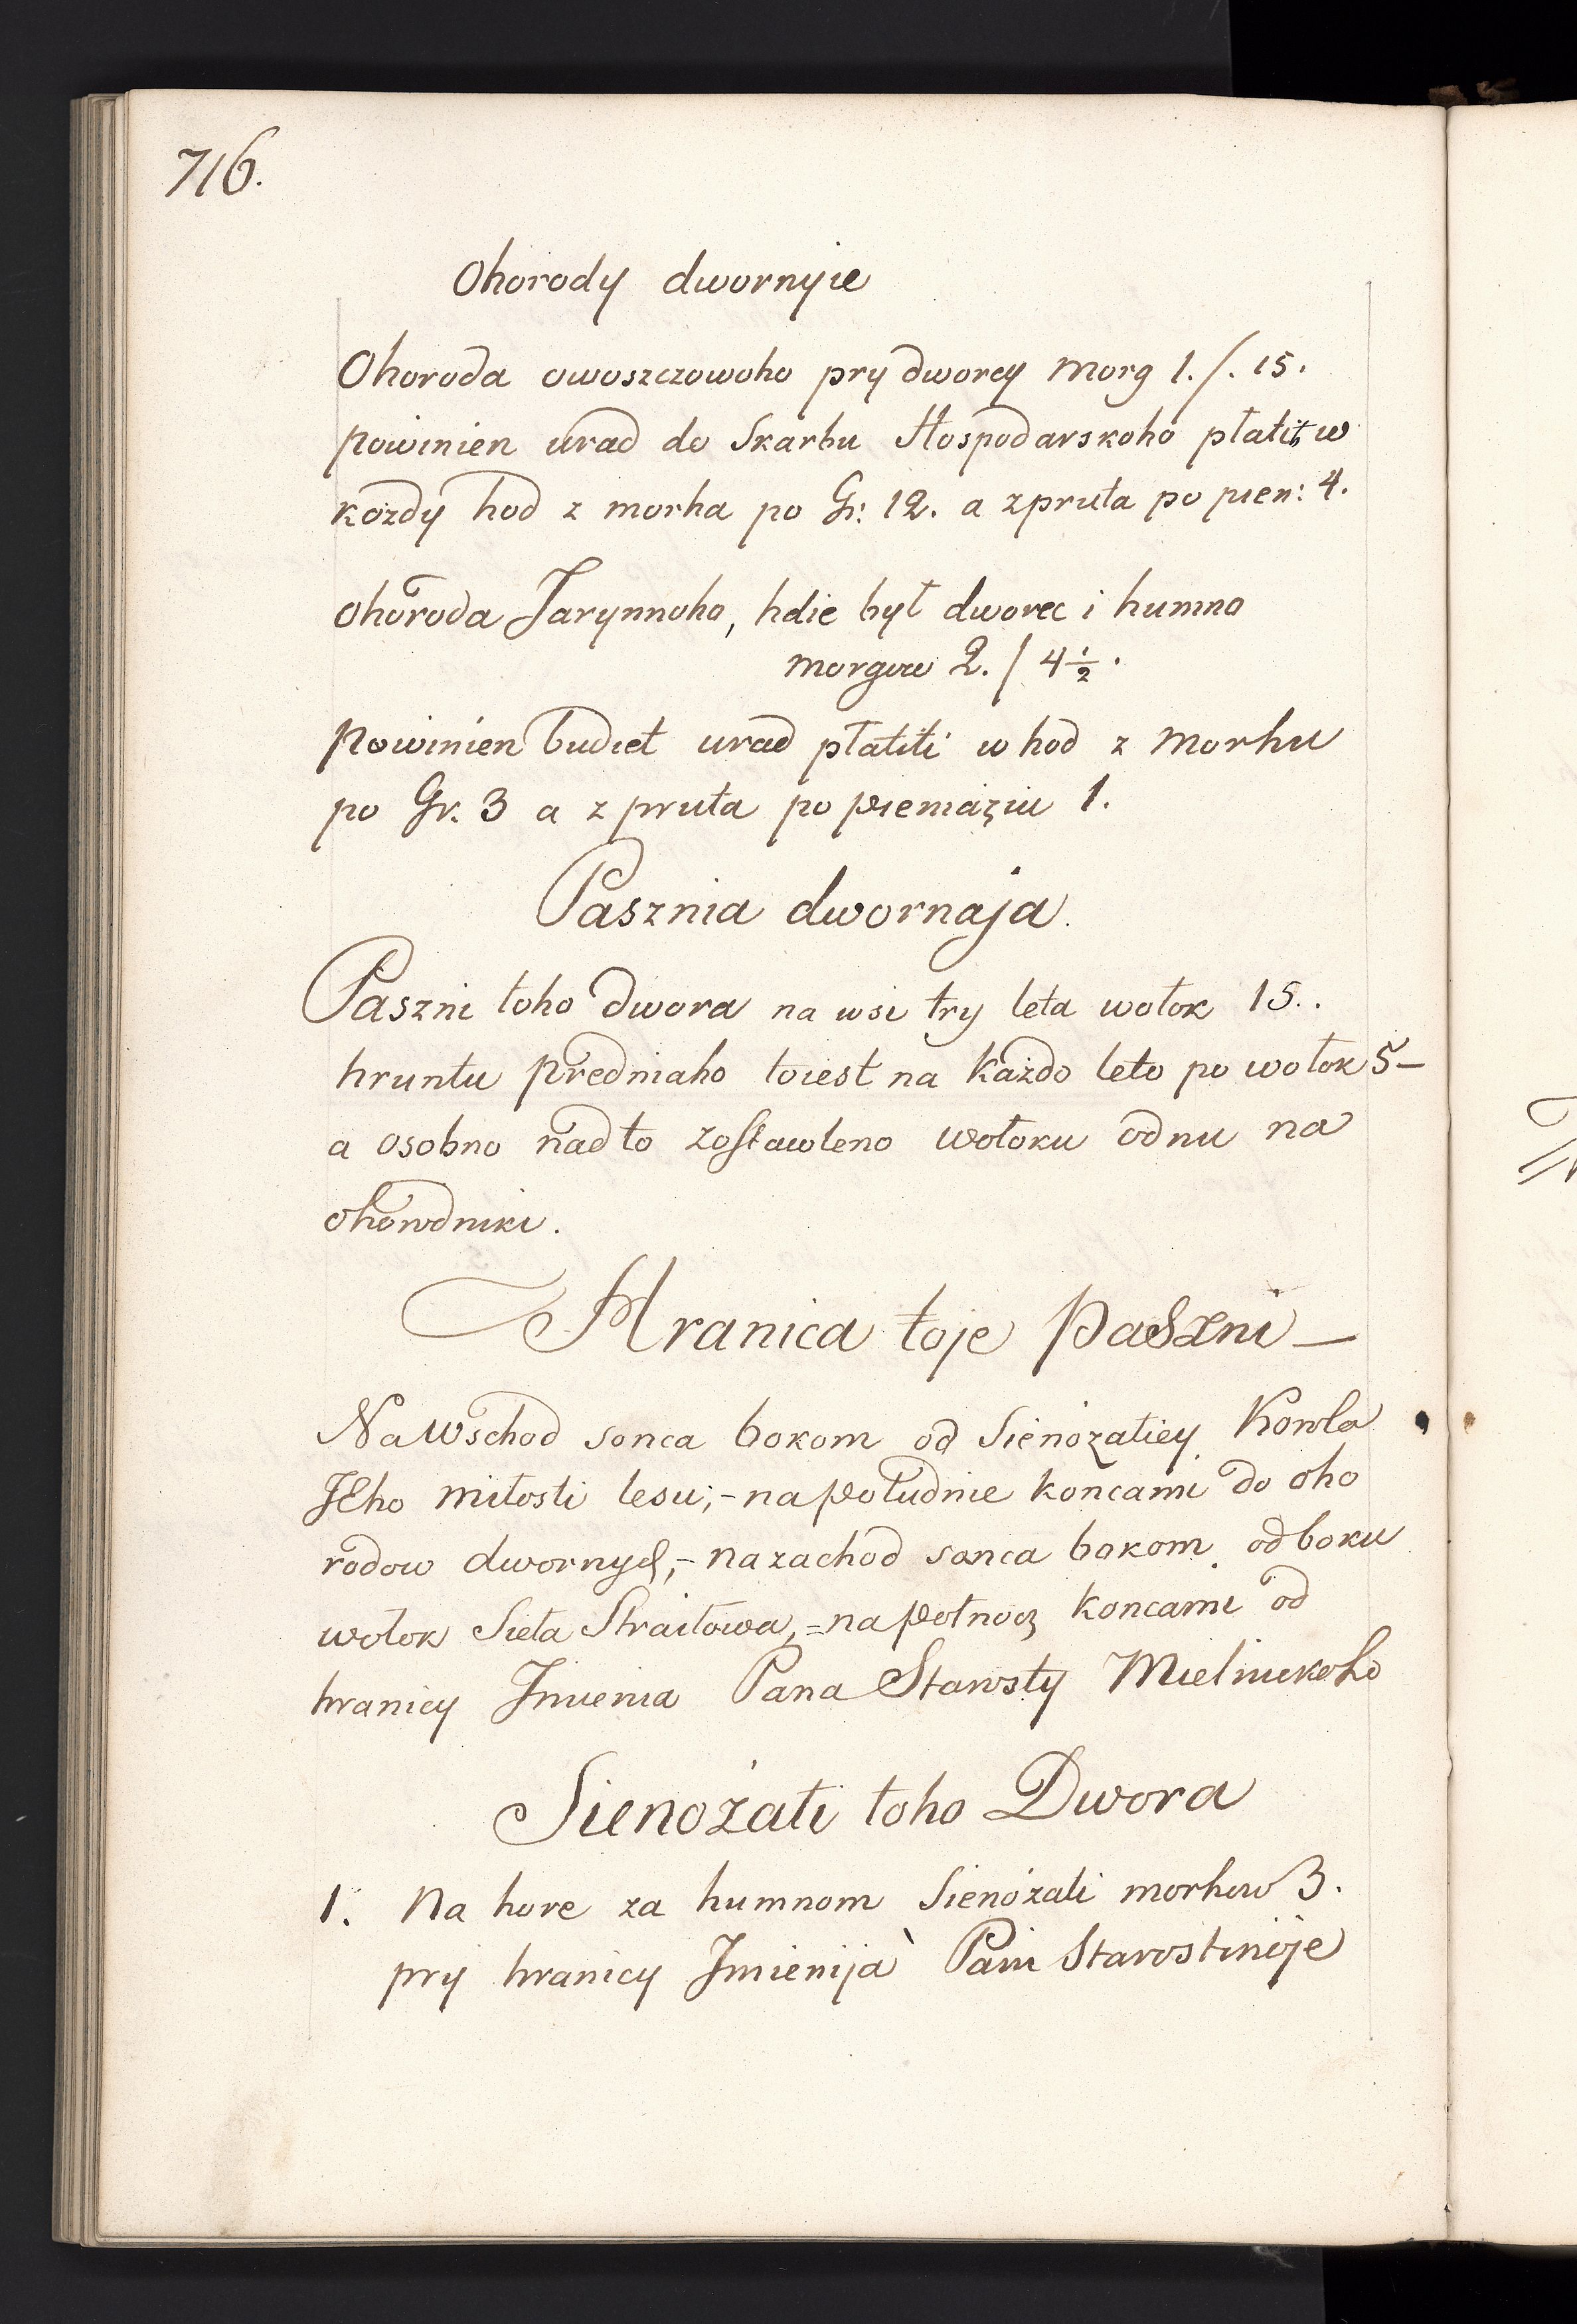 716.
Ohorody dwornyie
Ohoroda owoszczowoho pry dworcy morg 1./. 15.
powinien urad do Skarbu Hospodarskoho płatit w
kozdy hod z morha po Gr: 12. a z pruta po pien: 4.
ohoroda Jarynnoho, hdie był dworec i humno
morgow 2./ 4½.
powinien budiet urad płatiti w hod z morhu
po Gr. 3 a z pruta po pieniaziu 1.
Pasznia dwornaja.
Paszni toho dwora na wsi try leta wołok 15..
hruntu predniaho toiest na każdo leto po wołok 5—
a osobno nad to zostawleno wołoku odnu na
ohorodniki.
Hranica toje paszni—
Na wschod sonca bokom od Sienożatiey Korola
JEho miłosti lesu;- na południe koncami do oho
rodow dwornych,- na zachod sonca bokom od boku
wołok Sieła Straiłowa,= na połnocz koncami od
hranicy Imienia Pana Starosty Mielnickoho
Sienożati toho Dwora
1. Na hore za humnom Sienożati morhow 3.
pry hranicy Imienija Pani Starostinoje